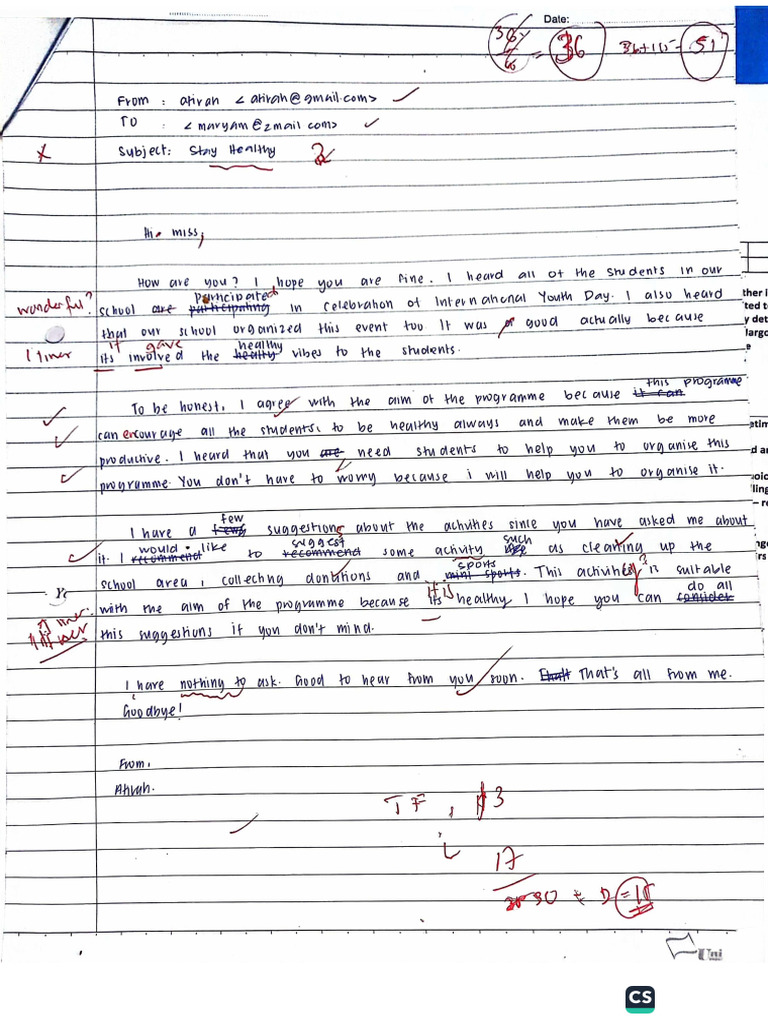 Date:
36
= 36
36+15 = 51
From : atirah < atirah@gmail.com>
TO : < maryam@zmail com>
Subject: Stay Healthy
2
Hi miss,
How are you? I hope you are fine. I heard all of the students in our
wonderful?
participated
school are participating in celebration of International Youth Day. I also heard
that our school organized this event too It was good actually because
1 liner
it gave healthy
its involved the healty vibes to the students.
this programme
To be honest, I agree with the aim of the programme because it can
can encourage all the students, to be healthy always and make them be more
productive. I heard that you are need students to help you to organise this
programme. You don't have to worry because i will help you to organise it.
few
I have a fews suggestions about the activities since you have asked me about
would like suggest such
it. I recommend to recommend some activity as cleaning up the
sports
school area, collecting donations and mini sports. This activities is suitable
it is do all
with the aim of the programme because its healthy I hope you can consider
liner
this suggestions if you don't mind.
I have nothing to ask. Good to hear from you soon. That's all from me.
Goodbye!
From,
Atirah.
TF, 3
i
17
30 D = 15
Uni
CS
ther i
ted to
y det
largo
e
etim
d a
oic
ling
– re
nge
rs